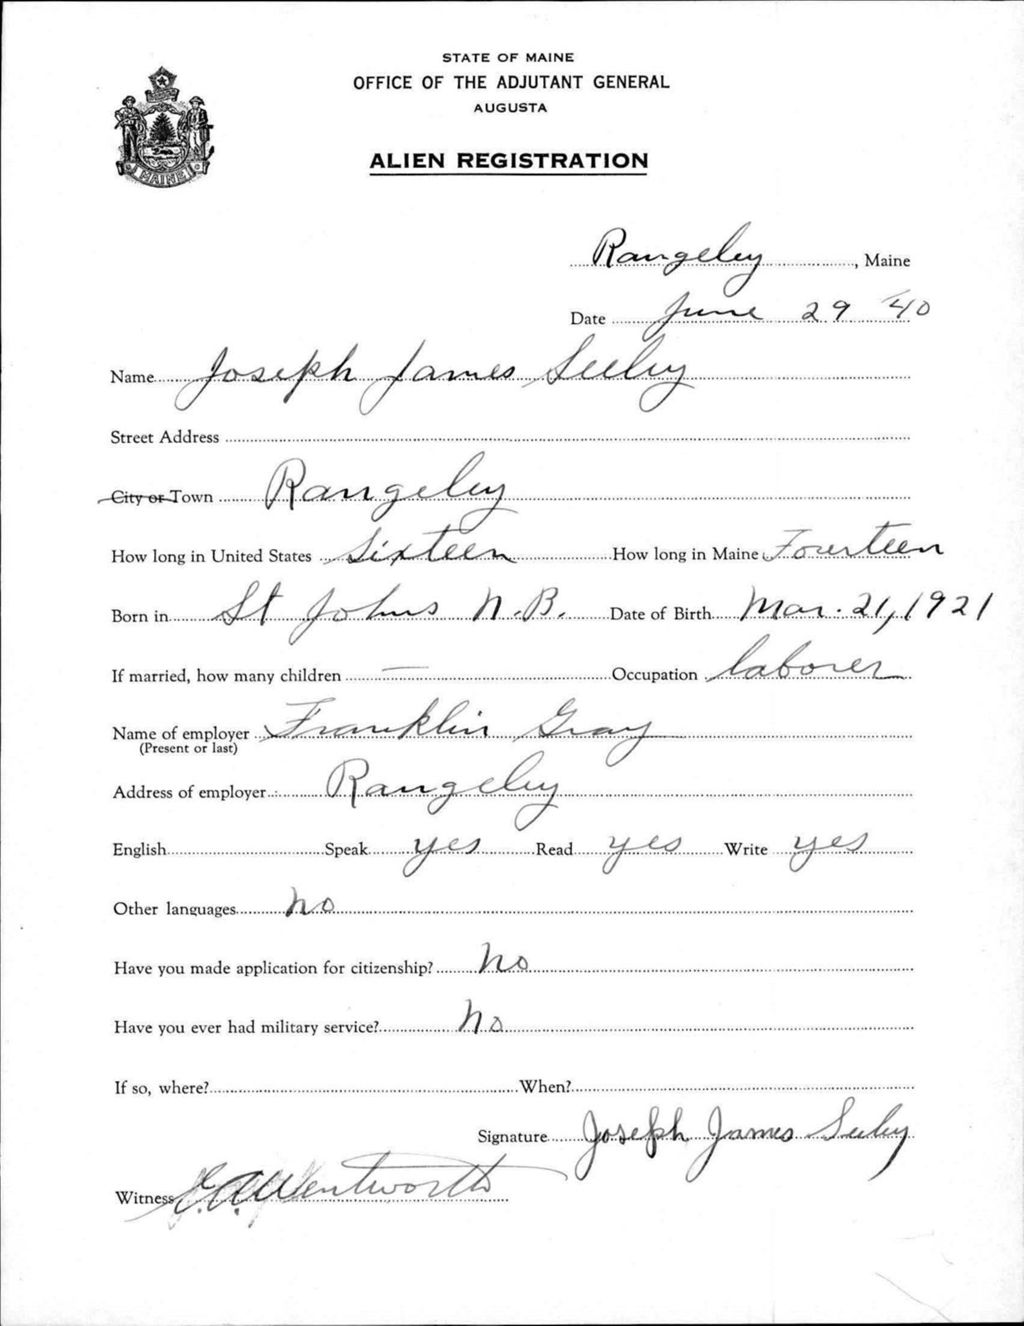 STATE OF MAINE
OFFICE OF THE ADJUTANT GENERAL
AUGUSTA
ALIEN REGISTRATION
MAINE
Rangeley, Maine
Date June 29 '40
Name Joseph James Seeley
Street Address
City or Town Rangeley
How long in United States Sixteen How long in Maine Fourteen
Born in St Johns N.B. Date of Birth Mar. 21, 1921
If married, how many children — Occupation laborer
Name of employer Franklin Gray
(Present or last)
Address of employer Rangeley
English Speak yes Read yes Write yes
Other languages no
Have you made application for citizenship? no
Have you ever had military service? no
If so, where? When?
Signature Joseph James Seeley
Witness Wentworth